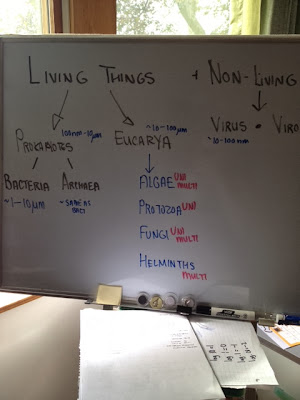 LIVING THINGS + NON-LIVING
PROKARYOTES 100nm-10µm EUCARYA ~10-100µm VIRUS • VIRO
~10-100nm
BACTERIA ARCHAEA ALGAE UNI MULTI
~1-10µm ~SAME AS BACT
PROTOZOA UNI
FUNGI UNI MULTI
HELMINTHS MULTI